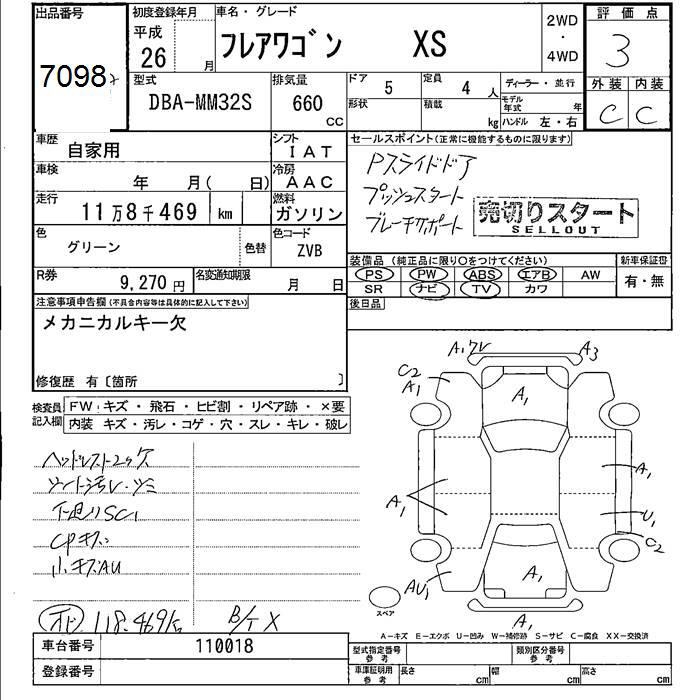 出品番号
7098
初度登録年月
平成
26 月
車名・グレード
フレアワゴン XS
2WD
・
4WD
評価点
3
外装 内装
C C
型式
DBA-MM32S
排気量
660
CC
ドア
5
形状
定員
4 人
積載
kg
ディーラー・並行
モデル年式 年
ハンドル 左・右
車歴
自家用
シフト
IAT
車検
年 月( 日)
冷房
AAC
走行
11万8千469 km
燃料
ガソリン
色
グリーン
色替
色コード
ZVB
R券
9,270円
名変通知期限
月 日
セールスポイント(正常に機能するものに限ります)
Pスライドドア
プッシュスタート
ブレーキサポート
売切りスタート
SELLOUT
装備品(純正品に限り○をつけてください)
PS PW ABS エアB AW
SR ナビ TV カワ
新車保証書
有・無
後日品
注意事項申告欄(不具合内容等は具体的に記入して下さい)
メカニカルキー欠
修復歴 有〔箇所 〕
検査員記入欄
FW キズ・飛石・ヒビ割・リペア跡・×要
内装 キズ・汚レ・コゲ・穴・スレ・キレ・破レ
シート汚レ・シミ
下廻りSC1
CPキズ
小キズAU
118.469km
B/T X
A3
C2
A1
A1
A1
A1
U1
C2
AU1
A1
A1
スペア
A−キズ E−エクボ U−凹み W−補修跡 S−サビ C−腐食 XX−交換済
車台番号
110018
登録番号
型式指定番号
参考
類別区分番号
参考
車庫証明用
参考
長さ cm
幅 cm
高さ cm